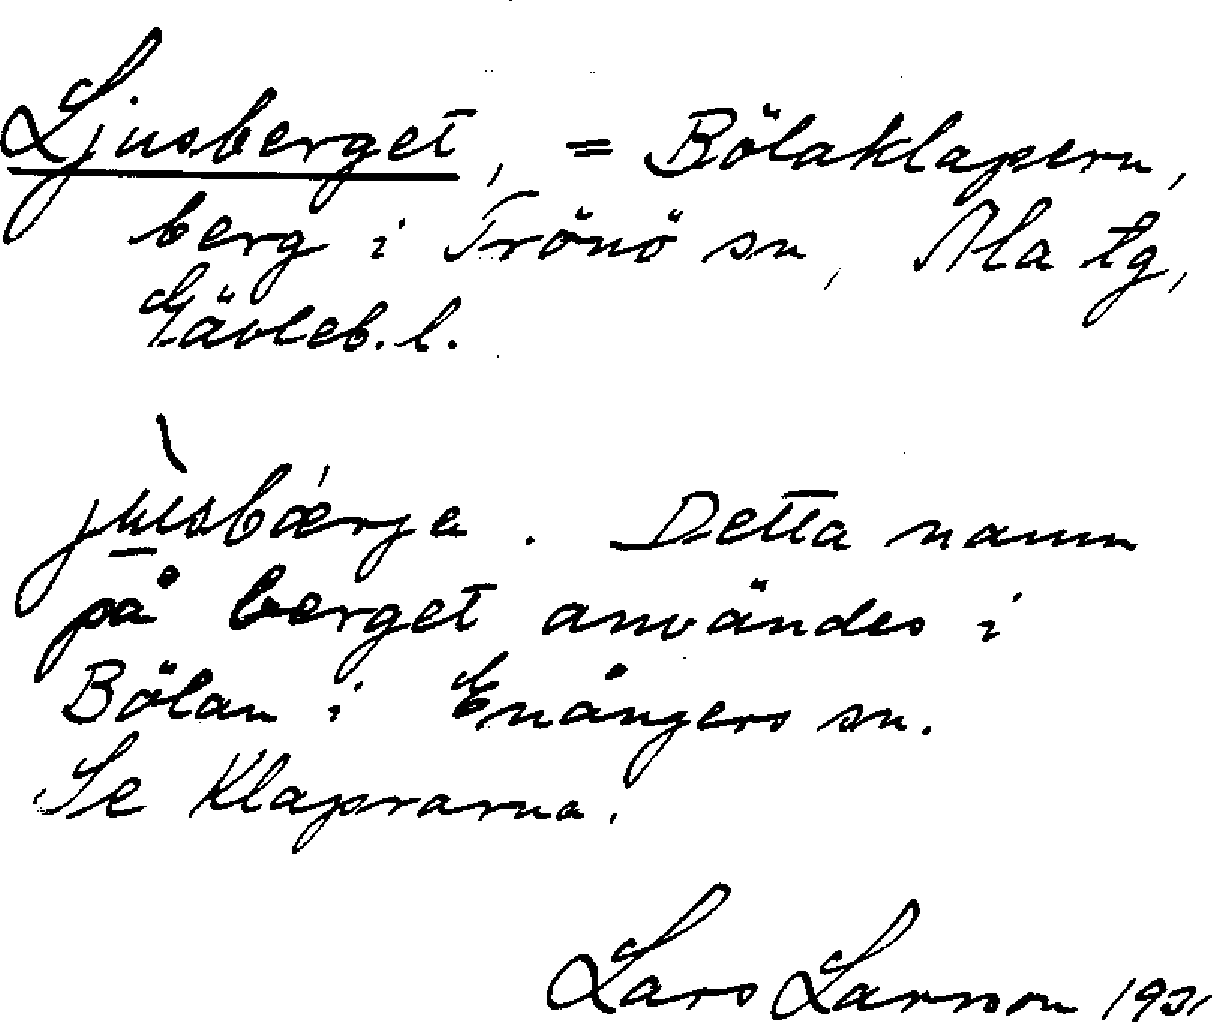 Ljusberget, = Bölaklapern,
berg i Trönö sn, Ala tg,
Gävleb. l.
jusbærje. Detta namn
på berget användes i
Bölan i Enångers sn.
Se Klaprarna.
Lars Larsson